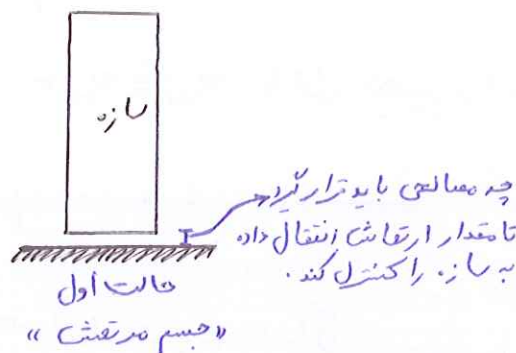 سازه
چه مصالحی باید قرار گیرد
تا مقدار ارتعاش انتقال داده
به سازه را کنترل کند.
حالت اول
«جسم مرتعش»